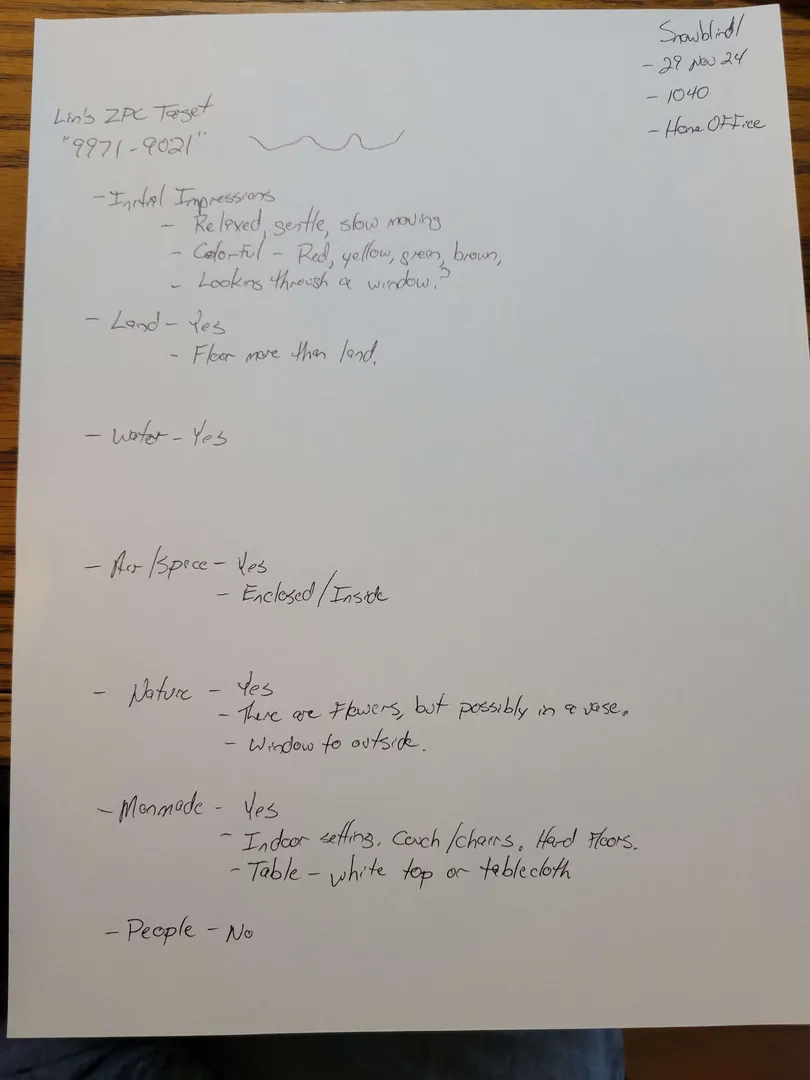 Snowblind/
- 29 Nov 24
- 1040
- Home Office
Lin's ZPC Target
"9971-9021"
- Initial Impressions
- Relaxed, gentle, slow moving
- Colorful - Red, yellow, green, brown,
- Looking through a window?
- Land - Yes
- Floor more than land.
- Water - Yes
- Air/Space - Yes
- Enclosed/Inside
- Nature - Yes
- There are Flowers, but possibly in a vase.
- Window to outside.
- Manmade - Yes
- Indoor setting. Couch/chairs. Hard Floors.
- Table - white top or tablecloth
- People - No